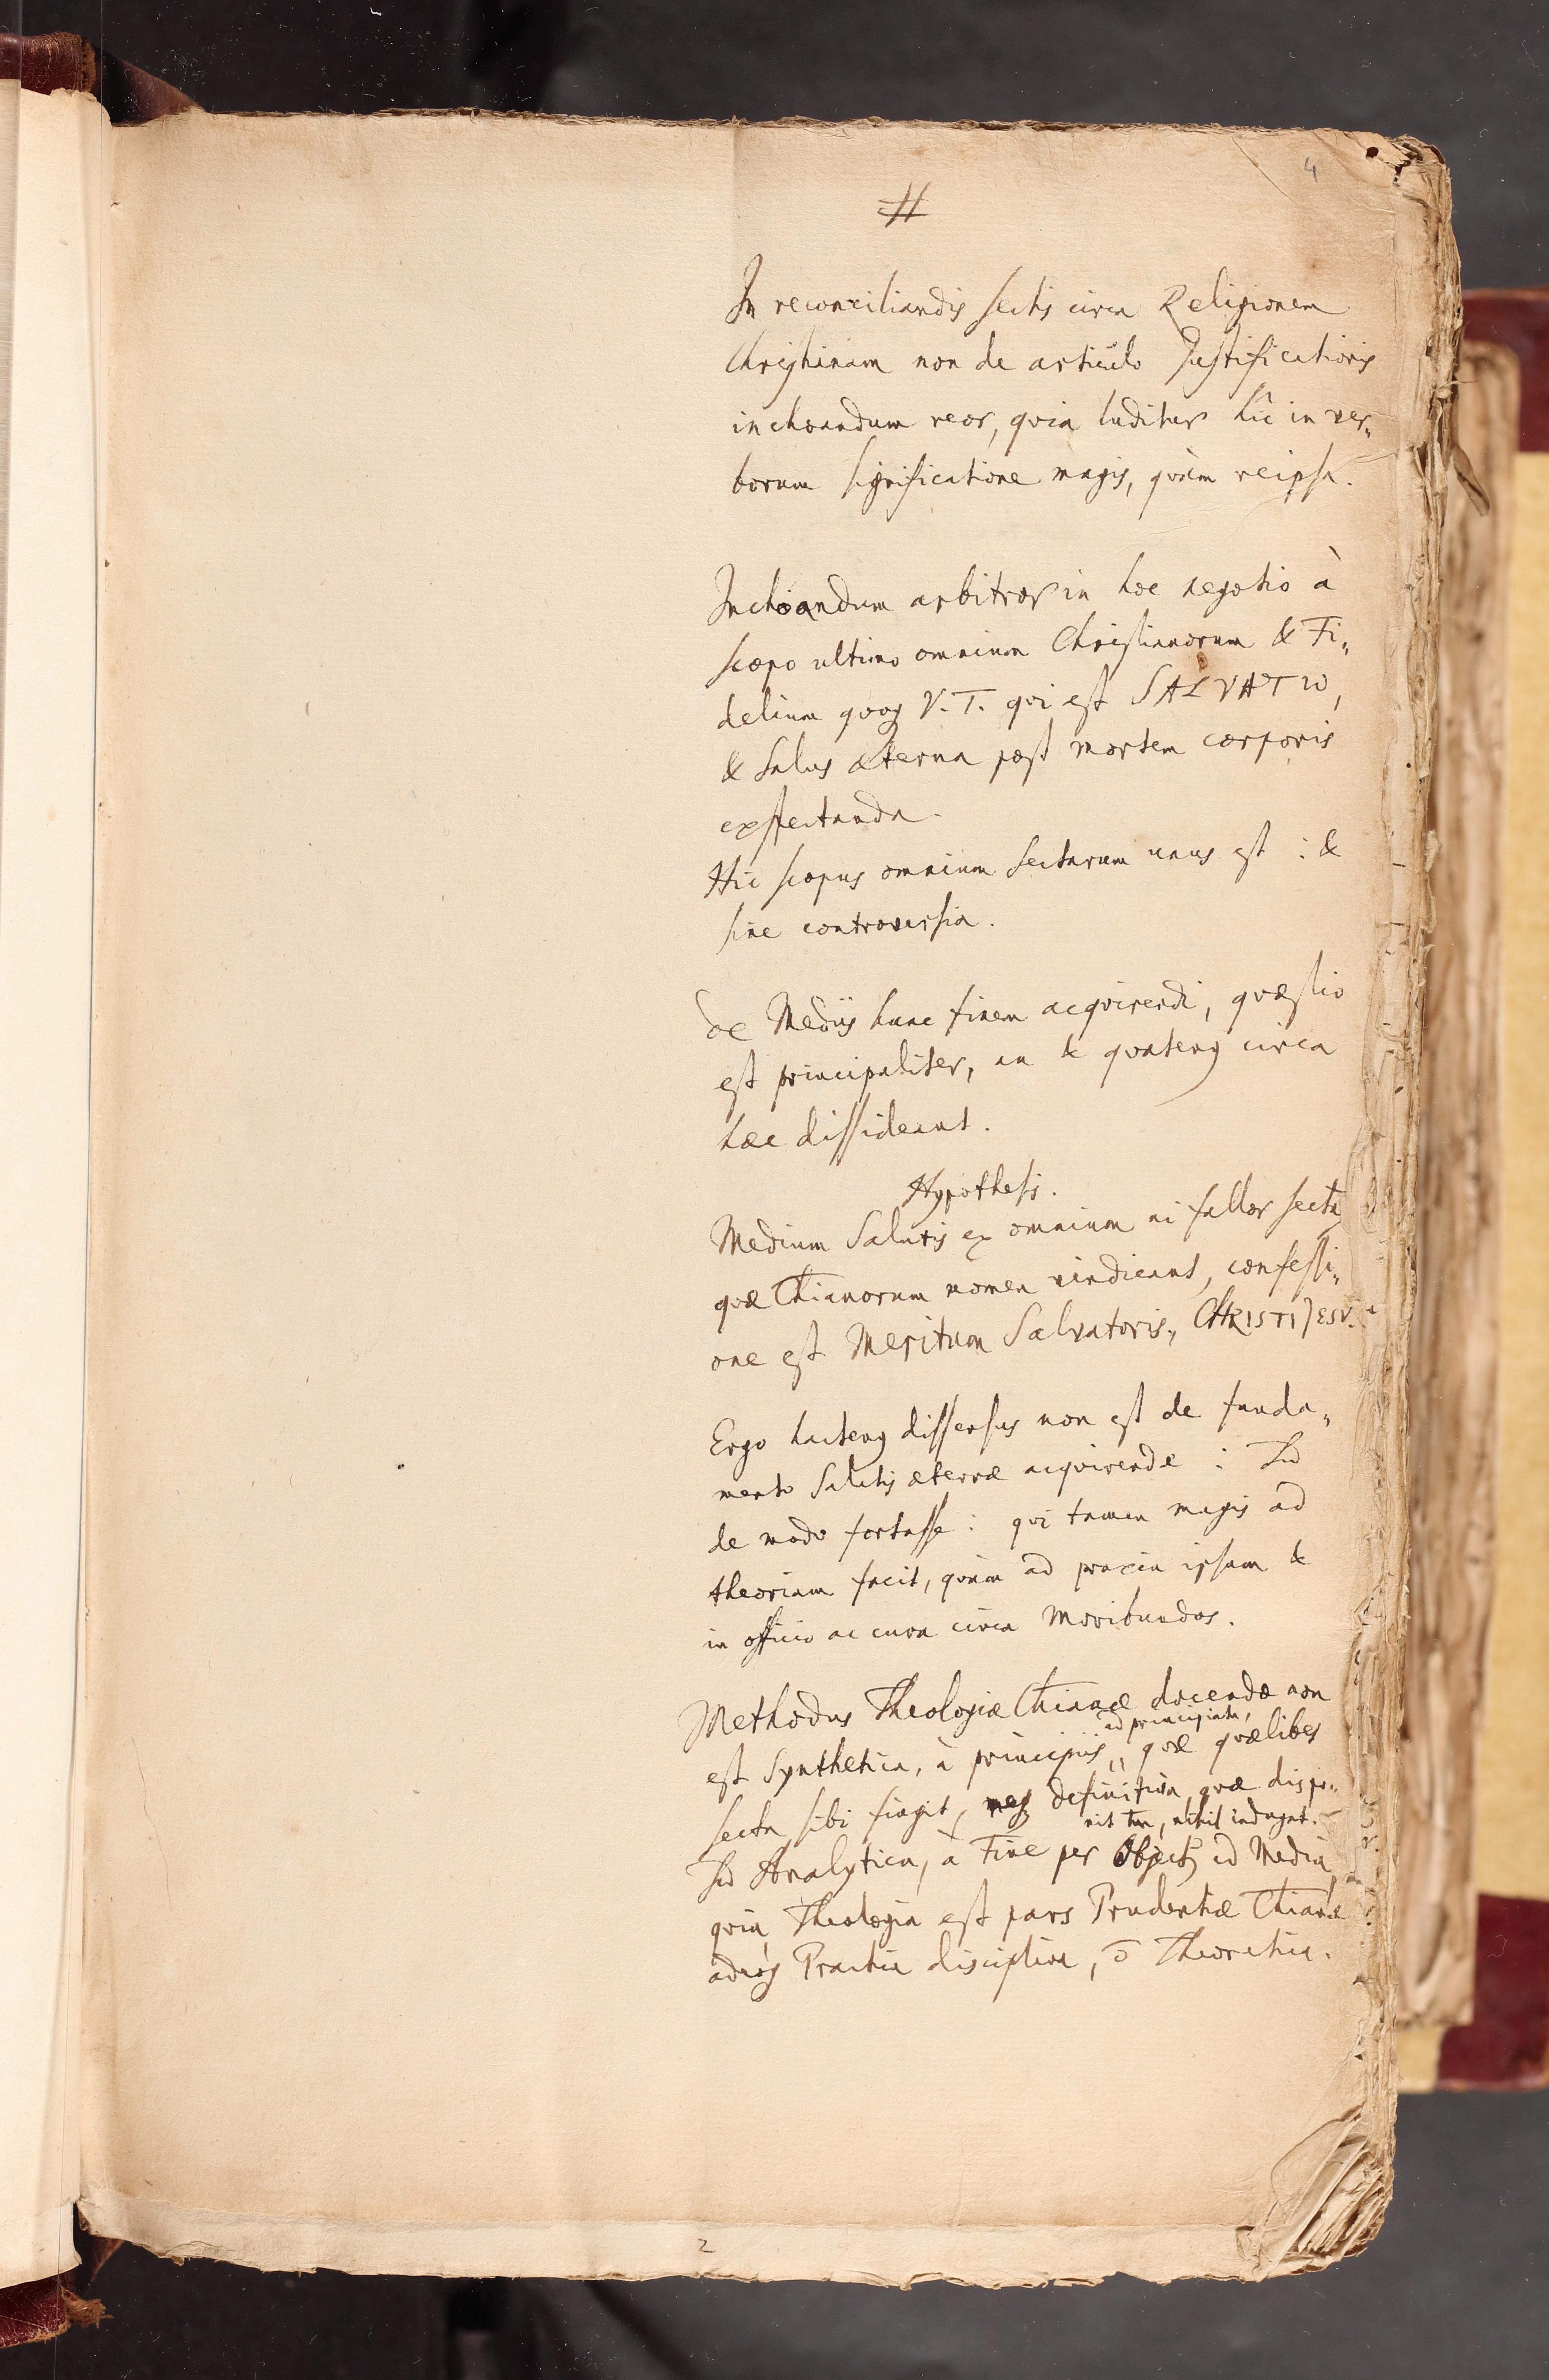 4
#
In reconciliandis sectis circa Religionem
Christianam non de articulo Justificationis
inchoandum reor, qvia luditur hîc in ver„
borum significatione magis, qvàm reipsa.
Inchoandum arbitror in hoc negotio à
scopo ultimo omnium Christianorum & Fi„
delium qvoq; V. T. qvi est SALVATIO,
& Salus æterna post mortem corporis
exspectanda.
Hic scopus omnium Sectarum unus est : &
sine controversia.
De Mediis hunc finem acqvirendi, qvæstio
est principaliter, an & qvatenq circa
hæc dissideant.
Hypothesis.
Medium Salutis ex omnium ni fallor secta
qvæ Chianorum nomen vindicant, confessi„
one est Meritum Salvatoris, CHRISTI JESV.
Ergo hactenq dissensus non est de funda„
mento Salutis æternæ acqvirendæ : Sed
de modo fortasse : qvi tamen magis ad
theoriam facit, qvàm ad praxin ipsam &
in officio ac cura circa Moribundos.
Methodus Theologiæ Chianæ docendæ non
ad principiata,
est Synthetica, à principiis„ qvæ qvælibet
secta sibi fingit, neq; definitiva, qvæ dispo„
nit tm, nihil indagat.
Sed Analytica, à Fine per Object ad Media,
qvia Theologia est pars Prudentiæ Chianæ
adeoq; Practica disciplina, ō Theoretica.
2